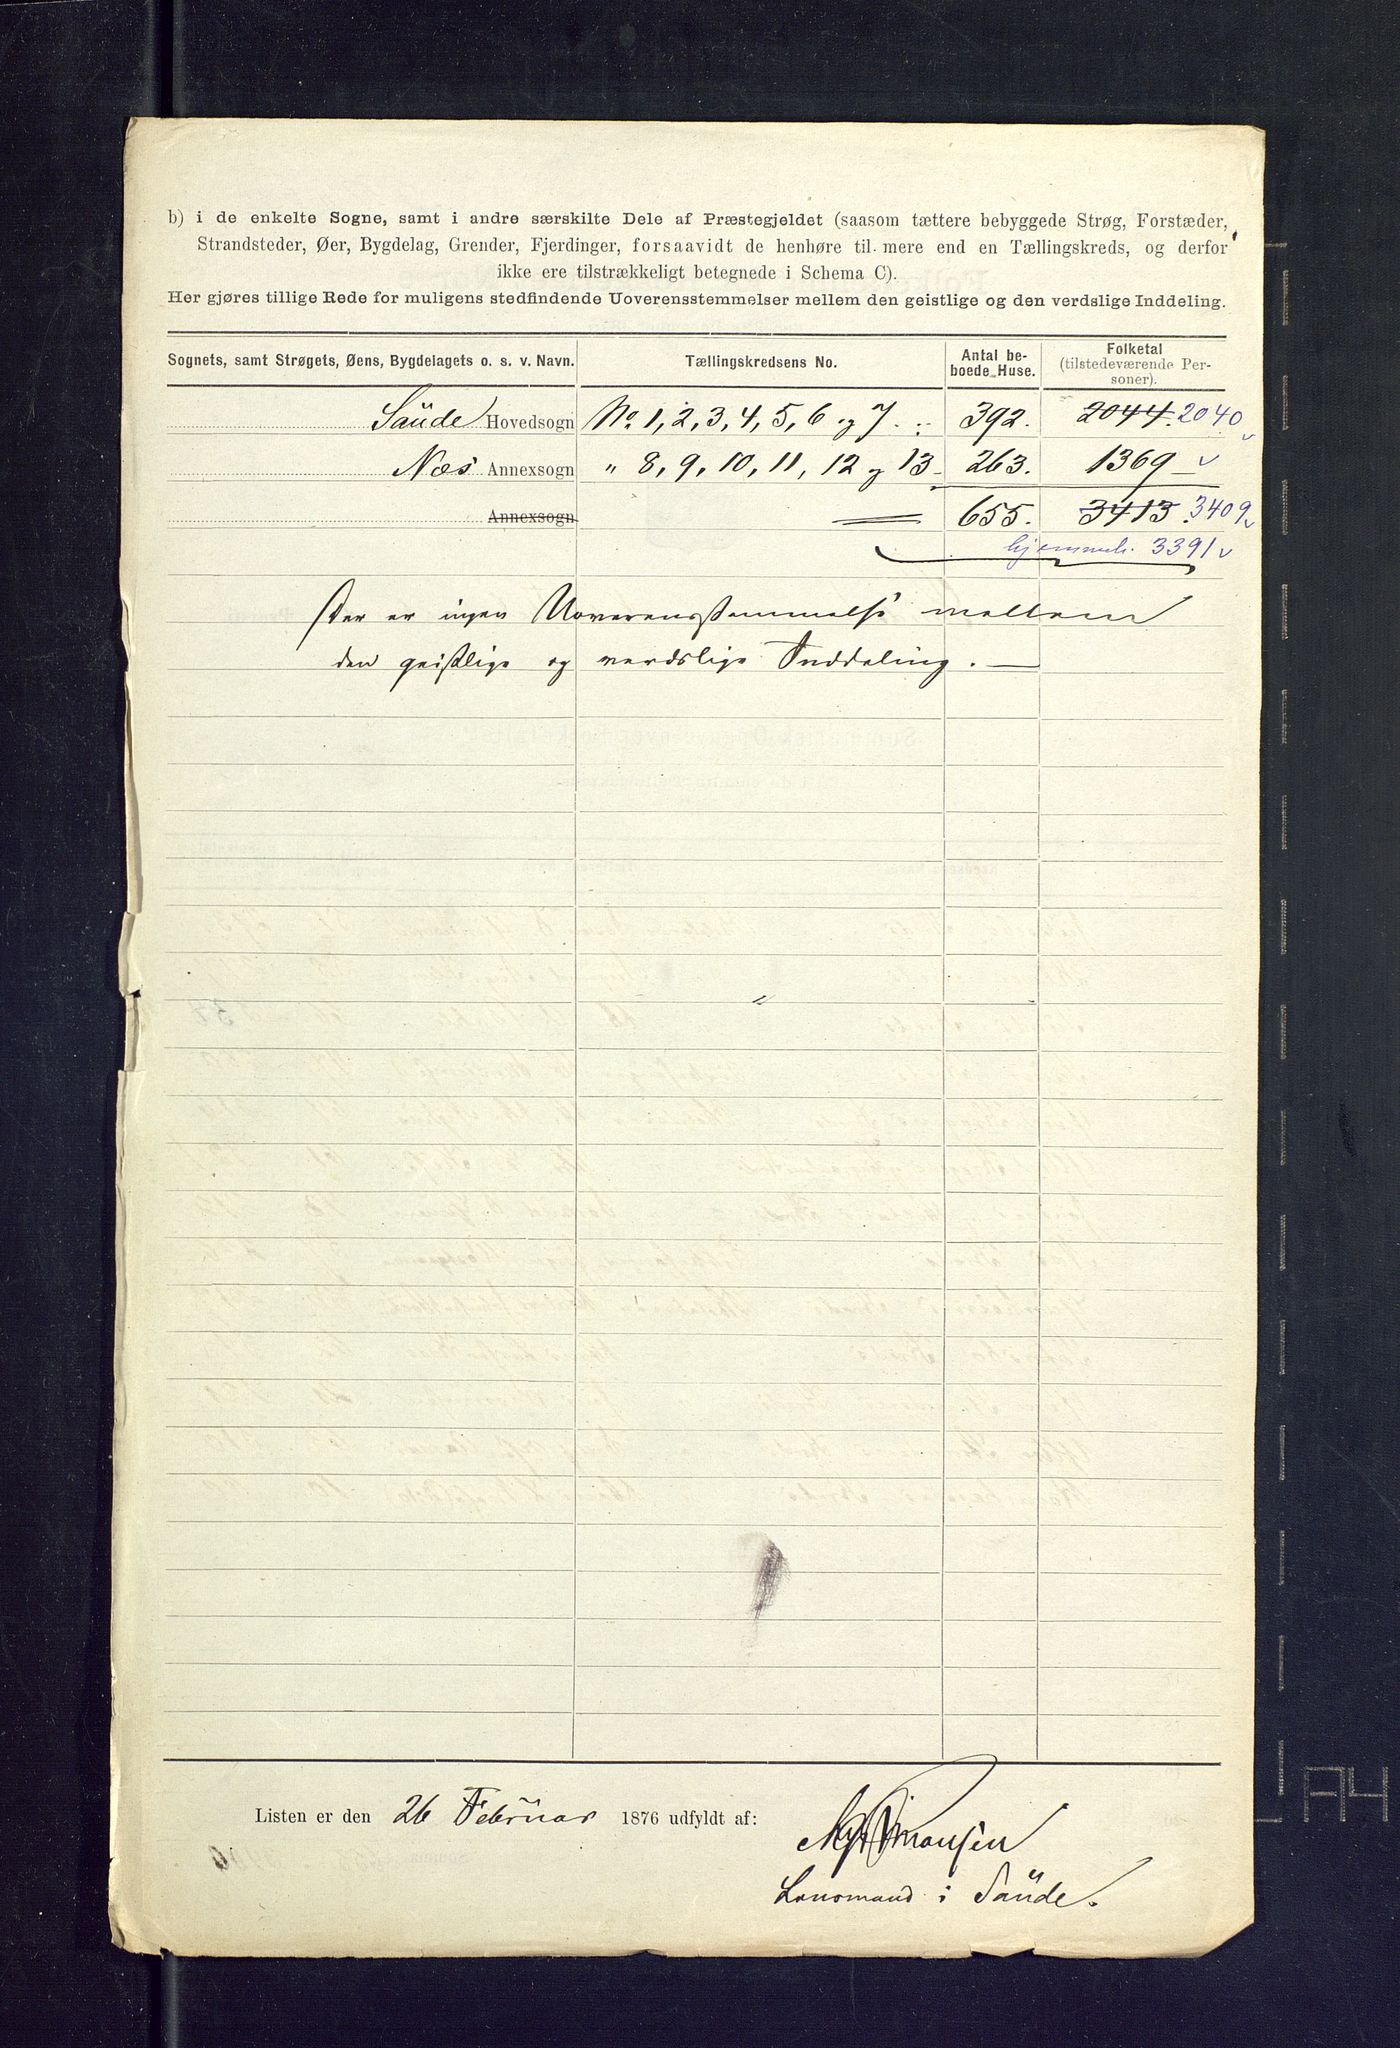 b) i de enkelte Sogne, samt i andre særskilte Dele af Præstegjeldet (saasom tættere bebyggede Strøg, Forstæder,
Strandsteder, Øer, Bygdelag, Grender, Fjerdinger, forsaavidt de henhøre til mere end en Tællingskreds, og derfor
ikke ere tilstrækkeligt betegnede i Schema C).
Her gjøres tillige Rede for muligens stedfindende Uoverensstemmelser mellem den geistlige og den verdslige Inddeling.
Sognets, samt Strøgets, Øens, Bygdelagets o. s. v. Navn. Tællingskredsens No. Antal beboede Huse. Folketal (tilstedeværende Personer).
Saude Hovedsogn No. 1, 2, 3, 4, 5, 6 og 7. 392. 2044. 2040
Næs Annexsogn " 8, 9, 10, 11, 12 og 13 263. 1369
Annexsogn 655. 3413. 3409
hjemmeh. 3391
Der er ingen Uoverensstemmelse mellem
den geistlige og verdslige Inddeling.
Listen er den 26 Februar 1876 udfyldt af:
Lensmand i Saude.
A4